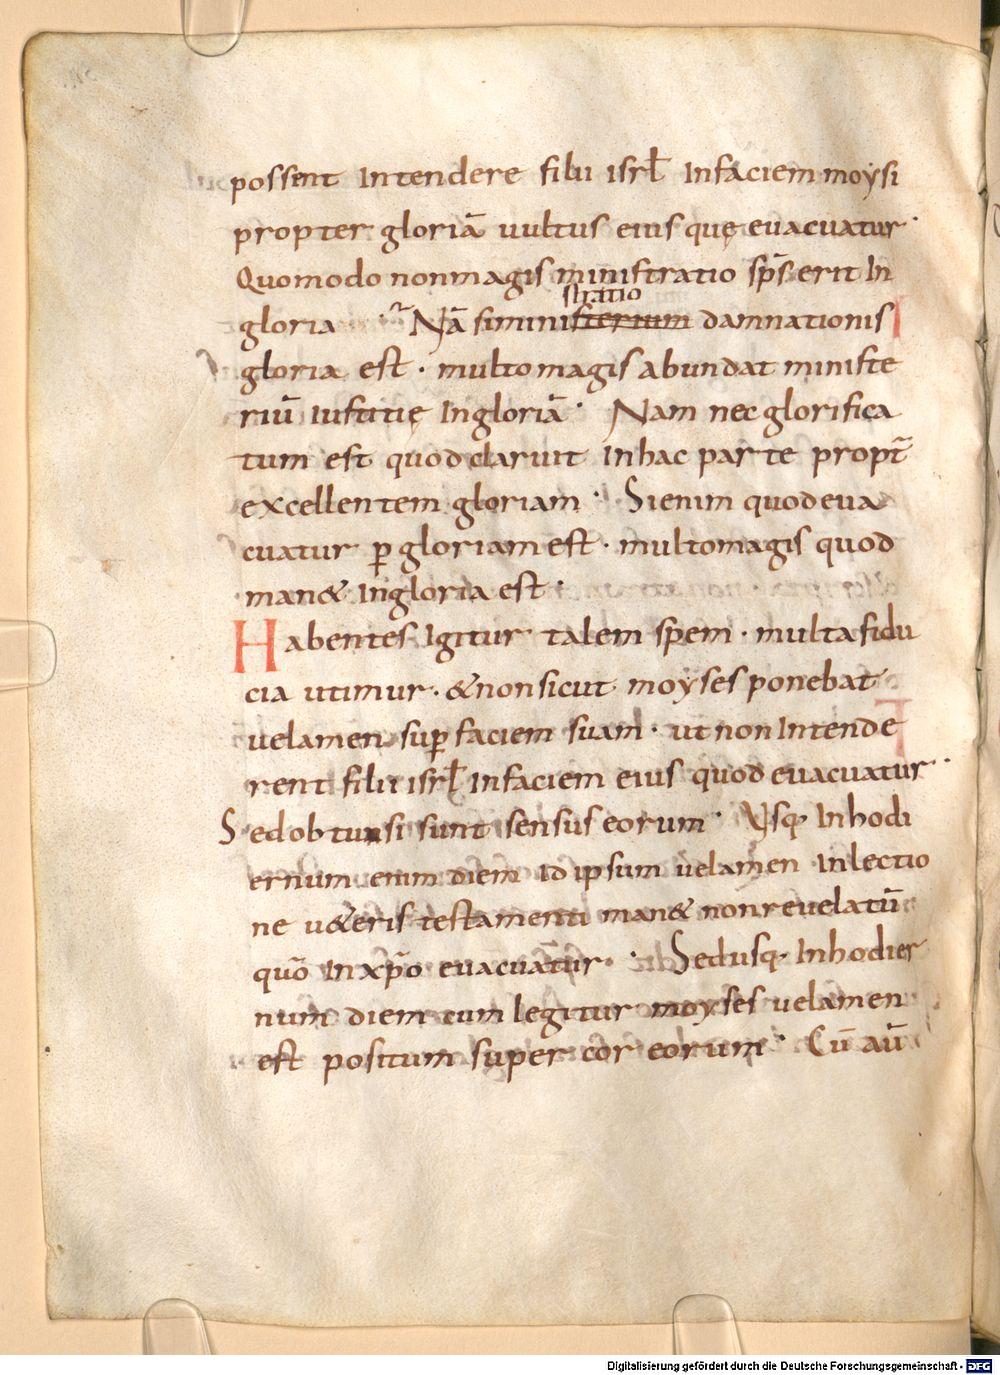 possent Intendere filii isrł Infaciem moysi
propter gloriā uultus eius quę euacuatur·
Quomodo nonmagis ministratio sp̄s erit In
stratio
gloria Nā siministerium damnationis
gloria est · multomagis abundat ministe
riū iustitię Ingloriā· Nam nec glorifica
tum est quod claruit Inhac parte propt̄
excellentem gloriam · Sienim quodeua
cuatur ꝑ gloriam est · multomagis quod
man& Ingloria est ·
Habentes Igitur talem spem · multa fidu
cia utimur · &nonsicut moyses ponebat
uelamen suꝑ faciem suam · ut non Intende
rent filii isrł Infaciem eius quod euacuatur·
Sed obtunsi sunt sensus eorum · Usq· Inhodi
ernum enim diem Id ipsum uelamen Inlectio
ne u&eris testamenti man& nonreuelatū
quō Inxp̄o euacuātur · Sedusq· Inhodier
num diem cum legitur moyses uelamen
est positum super cor eorum · Cū aū
Digitalisierung gefördert durch die Deutsche Forschungsgemeinschaft - DFG